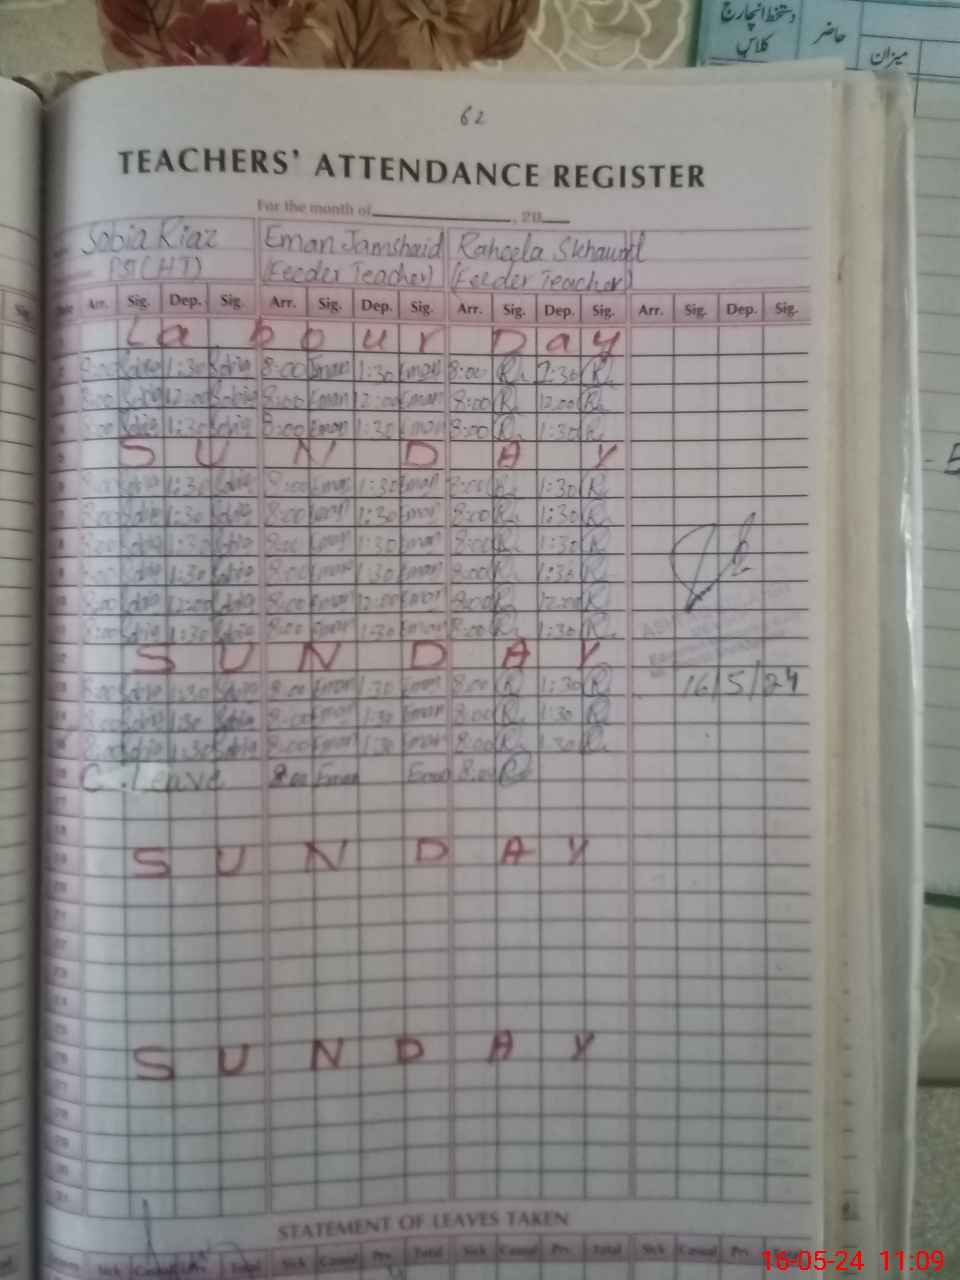 دستخط انچارج کلاس
حاضر
میزان
62
TEACHERS' ATTENDANCE REGISTER
For the month of ______, 20__
Sobia Riaz Eman Jamshaid Raheela Skhawat
PST(HT) (Feeder Teacher) (Feeder Teacher)
Arr. Sig. Dep. Sig. Arr. Sig. Dep. Sig. Arr. Sig. Dep. Sig. Arr. Sig. Dep. Sig.
Labour Day
8:00 Sobia 1:30 Sobia 8:00 Eman 1:30 Eman 8:00 R 1:30 R
8:00 Sobia 12:00 Sobia 8:00 Eman 12:00 Eman 8:00 R 12:00 R
8:00 Sobia 1:30 Sobia 8:00 Eman 1:30 Eman 8:00 R 1:30 R
SUNDAY
8:00 Sobia 1:30 Sobia 8:00 Eman 1:30 Eman 8:00 R 1:30 R
8:00 Sobia 1:30 Sobia 8:00 Eman 1:30 Eman 8:00 R 1:30 R
8:00 Sobia 1:30 Sobia 8:00 Eman 1:30 Eman 8:00 R 1:30 R
8:00 Sobia 1:30 Sobia 8:00 Eman 1:30 Eman 8:00 R 1:30 R
8:00 Sobia 12:00 Sobia 8:00 Eman 12:00 Eman 8:00 R 12:00 R
8:00 Sobia 1:30 Sobia 8:00 Eman 1:30 Eman 8:00 R 1:30 R
SUNDAY
8:00 Sobia 1:30 Sobia 8:00 Eman 1:30 Eman 8:00 R 1:30 R 16/5/24
8:00 Sobia 1:30 Sobia 8:00 Eman 1:30 Eman 8:00 R 1:30 R
8:00 Sobia 1:30 Sobia 8:00 Eman 1:30 Eman 8:00 R 1:30 R
C.Leave 8:00 Eman Eman 8:00 R
SUNDAY
SUNDAY
STATEMENT OF LEAVES TAKEN
Sick Casual Prv. Total Sick Casual Prv. Total Sick Casual Prv. Total
16-05-24 11:09